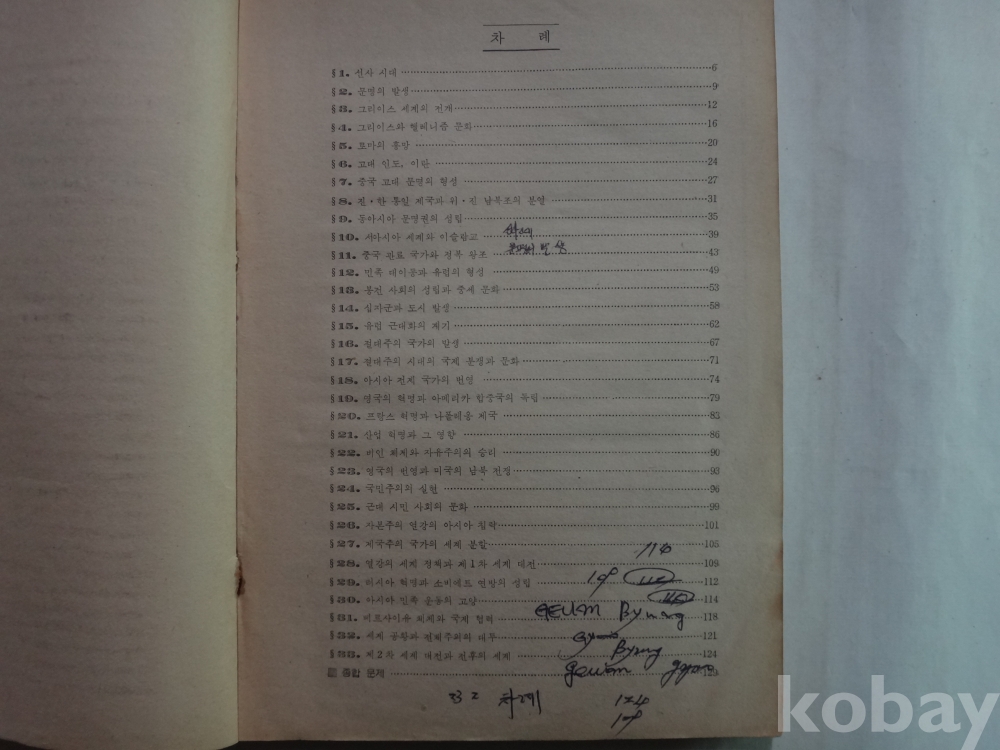 차 례
§1. 선사 시대 6
§2. 문명의 발생 9
§3. 그리이스 세계의 전개 12
§4. 그리이스와 헬레니즘 문화 16
§5. 로마의 흥망 20
§6. 고대 인도, 이란 24
§7. 중국 고대 문명의 형성 27
§8. 진·한 통일 제국과 위·진 남북조의 분열 31
§9. 동아시아 문명권의 성립 35
§10. 서아시아 세계와 이슬람교 39
§11. 중국 관료 국가와 정복 왕조 43
§12. 민족 대이동과 유럽의 형성 49
§13. 봉건 사회의 성립과 중세 문화 53
§14. 십자군과 도시 발생 58
§15. 유럽 근대화의 제기 62
§16. 절대주의 국가의 발생 67
§17. 절대주의 시대의 국제 분쟁과 문화 71
§18. 아시아 전제 국가의 번영 74
§19. 영국의 혁명과 아메리카 합중국의 독립 79
§20. 프랑스 혁명과 나폴레옹 제국 83
§21. 산업 혁명과 그 영향 86
§22. 비인 체제와 자유주의의 승리 90
§23. 영국의 번영과 미국의 남북 전쟁 93
§24. 국민주의의 실현 96
§25. 근대 시민 사회의 문화 99
§26. 자본주의 열강의 아시아 침략 101
§27. 제국주의 국가의 세계 분할 105
§28. 열강의 세계 정책과 제1차 세계 대전 109
§29. 러시아 혁명과 소비에트 연방의 성립 112
§30. 아시아 민족 운동의 고양 114
§31. 베르사이유 체제와 국제 협력 118
§32. 세계 공황과 전체주의의 대두 121
§33. 제2차 세계 대전과 전후의 세계 124
종합 문제 129
GEUM Byung
Byung
geum
33 2 차례
124
kobay